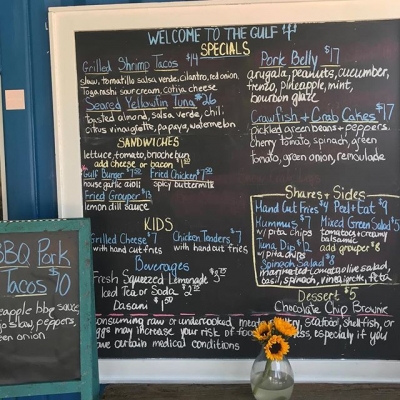 WELCOME TO THE GULF
SPECIALS
Grilled Shrimp Tacos $14
slaw, tomatillo salsa verde, cilantro, red onion,
Togarashi sour cream, cotija cheese
Seared Yellowfin Tuna $26
toasted almond, salsa, verde, chili
citrus vinaigrette, papaya, watermelon
SANDWICHES
lettuce, tomato, brioche bun
add cheese or bacon
Gulf Burger $7.50 Fried Chicken $7.50
house garlic aioli spicy buttermilk
Fried Grouper $13
lemon dill sauce
KIDS
Grilled Cheese $7 Chicken Tenders $7
with hand cut fries with hand cut fries
Beverages
Fresh Squeezed Lemonade
Iced Tea or Soda
Dasani
Consuming raw or undercooked meats, seafood, shell-fish, or
eggs may increase your risk of food, especially if you
have certain medical conditions
Pork Belly $17
arugula, peanuts, cucumber,
pineapple, mint,
bourbon glaze
Crawfish + Crab Cakes $17
pickled green beans + peppers
cherry tomato, spinach, green
tomato, green onion, remoulade
Shares + Sides
Hand Cut Fries $4 Peel + Eat $9
Hummus $7 Mixed Green Salad $5
w/ pita chips tomatoes + creamy
balsamic
Tuna Dip add grouper $8
w/ pita chips
Spinach Salad $8
marinated tomato, olive salad,
basil, spinach, vinaigrette, feta
Dessert $5
Chocolate Chip Brownie
BBQ Pork
Tacos $10
pineapple bbq sauce,
slaw, peppers,
green onion